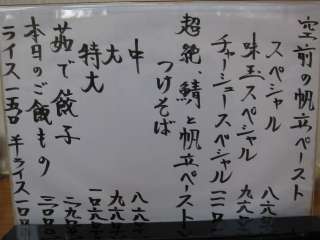 空前の帆立ペースト
スペシャル 八六〇
味玉スペシャル 九六〇
チャーシュースペシャル 一一一〇
超絶、鯖と帆立ペースト
つけそば
中 八六〇
大 九六〇
特大 一〇六〇
茹で餃子 二九〇
本日のご飯もの 二〇〇
ライス 一五〇 半ライス 一〇〇